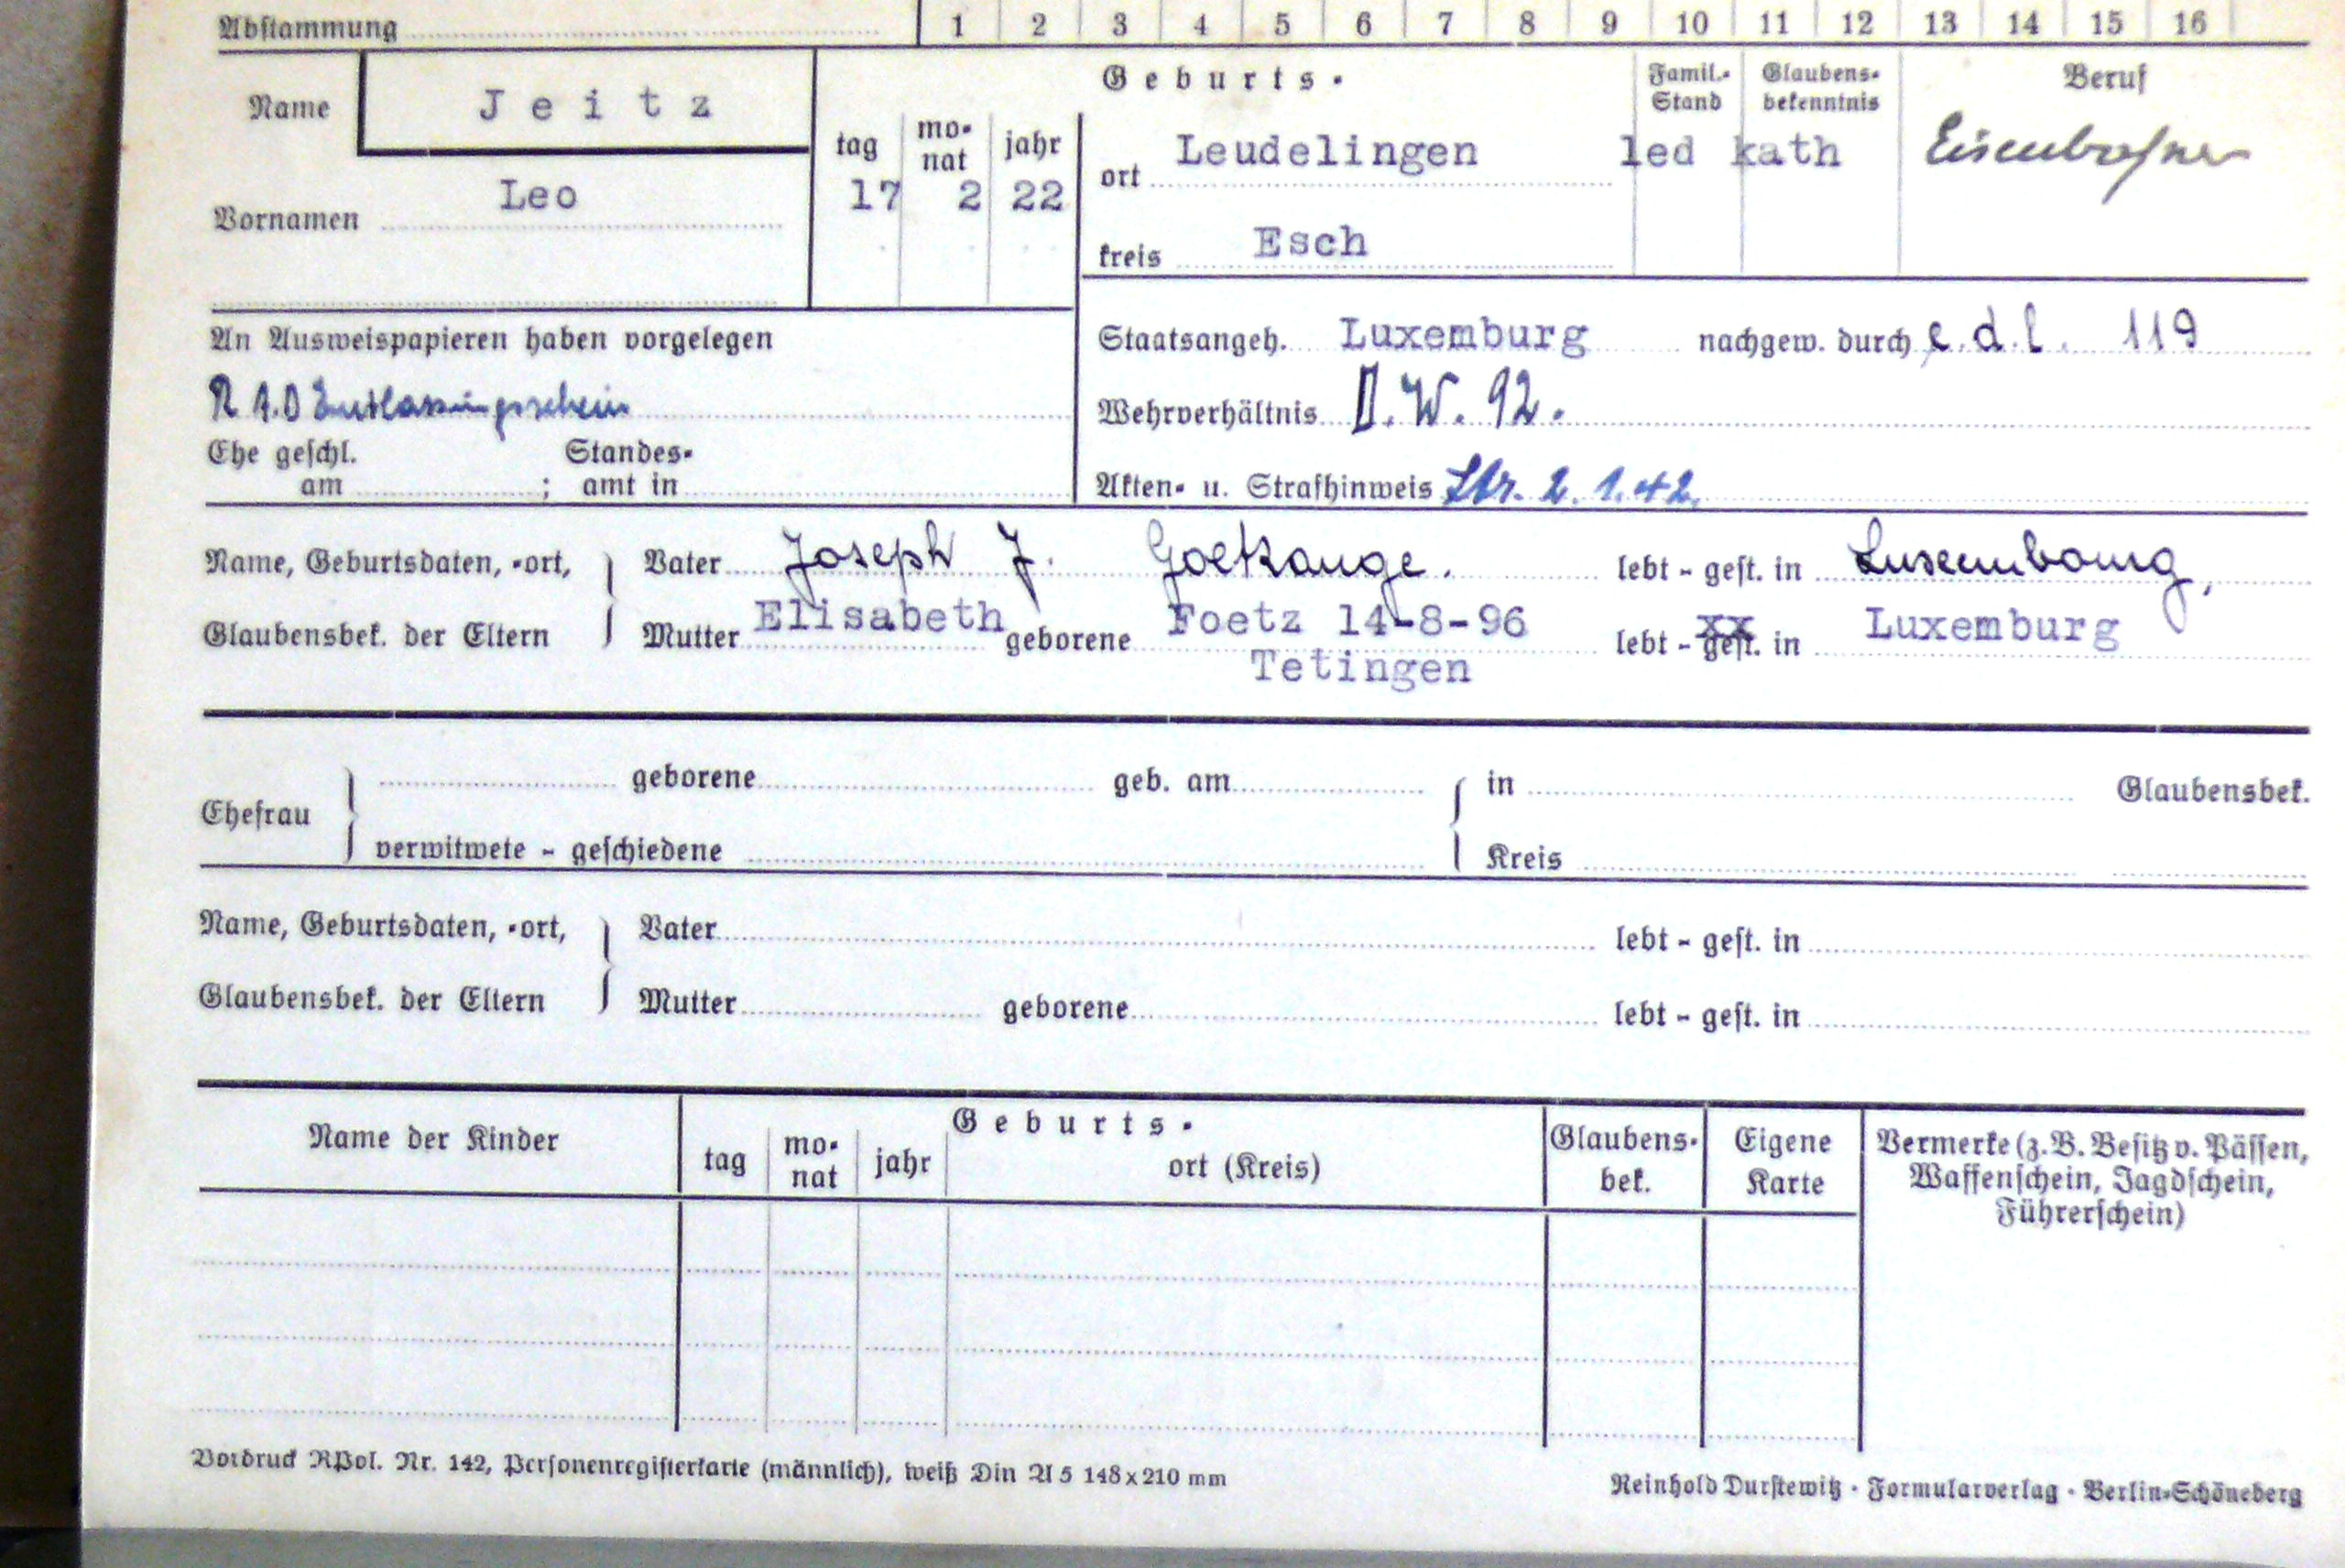 Abstammung 1 2 3 4 5 6 7 8 9 10 11 12 13 14 15 16
Name Jeitz
Geburts-
Famil.-Stand
Glaubens-bekenntnis
Beruf
tag mo-nat jahr
ort Leudelingen led kath Eisenbahner
Vornamen Leo 17 2 22
kreis Esch
An Ausweispapieren haben vorgelegen
Staatsangeh. Luxemburg nachgew. durch e. d. l. 119
R A.D Entlassungsschein
Wehrverhältnis D.W. 92.
Ehe geschl. Standes-
am ; amt in
Akten- u. Strafhinweis Str. 2.1.42.
Name, Geburtsdaten, -ort, Vater Joseph J. lebt - gest. in Luxembourg,
Glaubensbek. der Eltern Mutter Elisabeth geborene Foetz 14-8-96 lebt - gest. in Luxemburg
Tetingen
geborene geb. am in Glaubensbek.
Ehefrau
verwitwete - geschiedene Kreis
Name, Geburtsdaten, -ort, Vater lebt - gest. in
Glaubensbek. der Eltern Mutter geborene lebt - gest. in
Name der Kinder
Geburts-
tag mo-nat jahr ort (Kreis)
Glaubens-
bek.
Eigene
Karte
Vermerke (z. B. Besitz v. Pässen,
Waffenschein, Jagdschein,
Führerschein)
Vordruck RPol. Nr. 142, Personenregisterkarte (männlich), weiß Din A 5 148x210 mm
Reinhold Durstewitz · Formularverlag · Berlin-Schöneberg